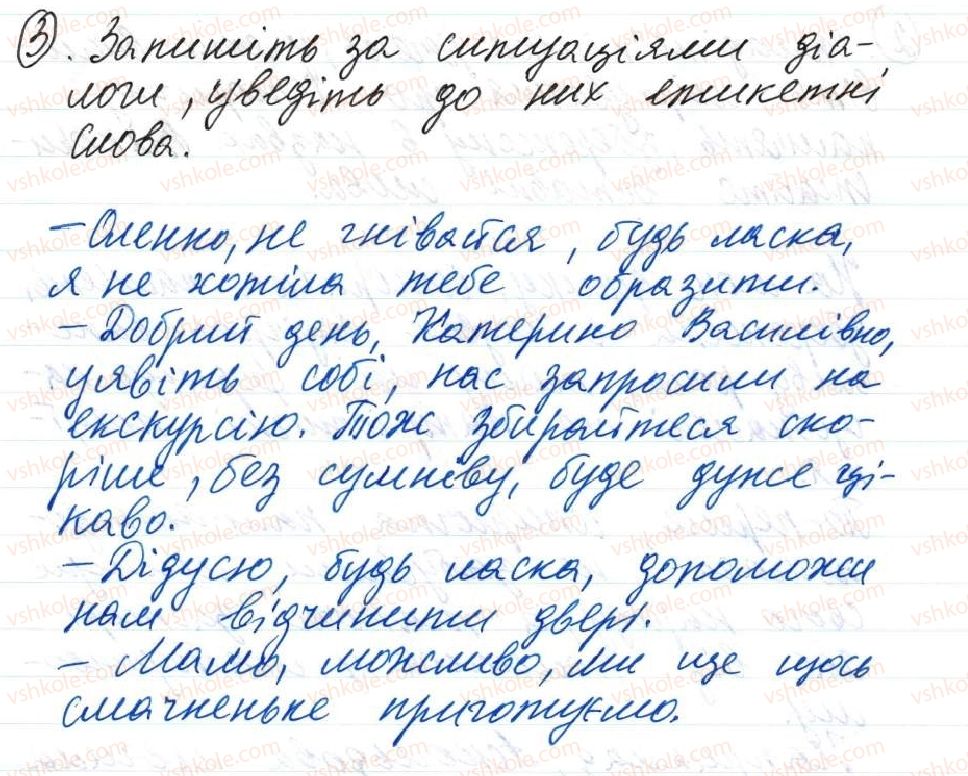 3. Запишіть за ситуаціями діа-
логи, уведіть до них етикетні
слова.
– Оленко, не гнівайся, будь ласка,
я не хотіла тебе образити.
– Добрий день, Катерино Василівно,
уявіть собі, нас запросили на
екскурсію. Тож збирайтеся ско-
ріше, без сумніву, буде дуже ці-
каво.
– Дідусю, будь ласка, допоможи
нам відчинити двері.
– Мамо, можливо, ми ще щось
смачненьке приготуємо.